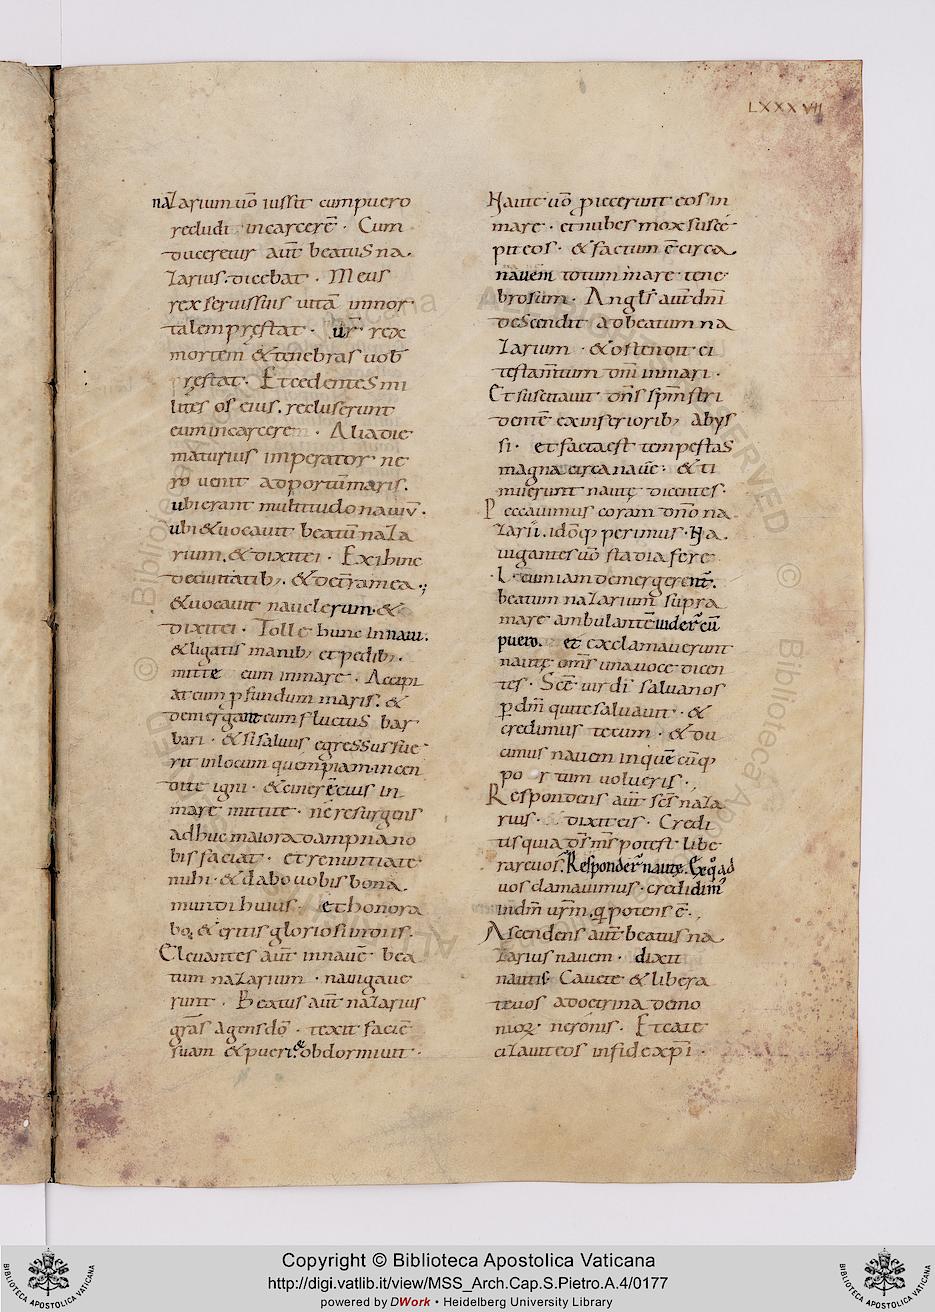 LXXXVII
nazarium uō iussit cum puero
recludi in carcerē · Cum
duceretur aut̄ beatus na
zarius · dicebat · Meus
rex seruis suis uitā inmor
talem prȩstat · ur̄ rex
mortem & tenebras uob̄
prȩstat · Et cedentes mi
lites os eius · recluserunt
eum in carcerem · Alia die
maturius imperator ne
ro uenit ad portūmaris ·
ubi erant multitudo nauiū ·
ubi & uocauit beatū naza
rium · & dixit ei · Exi hinc
de ciuitatib; · & de terra mea ·;
& uocauit nauclerum · &
dixit ei · Tolle hunc in naui ·
& ligatis manib; et pedib; ·
mitte eum in mare · Accipi
at eum pfundum maris · &
demergant eum fluctus bar
bari · & si saluus egressus fue
rit in locum quempiam · incen
dite igni · & cinerē eius in
mare mittite · ne resurgens
adhuc maiora dampna no
bis faciat · et renuntiate
mihi · & dabo uobis bona
mundi huius · et honora
bo · & eritis gloriosi uiduis ·
Eleuantes aut̄ in nauē · bea
tum nazarium · nauigaue
runt · Beatus aut̄ nazarius
gr̄as agens dō · texit faciē
suam & pueri & obdormiuit ·
Naute uō piecerunt eos in
mare · et nubes mox susce
pit eos · & factum ē circa
nauem totum mare tene
brosum · Angl's aut̄ dn̄i
descendit ad beatum na
zarium · & ostendit ei
testam̄tum dn̄i in mari ·
Et suscitauit dn̄s sp̄m stri
dentē ex inferiorib; abys
si · et facta est tempestas
magna circa nauē · & ti
muerunt nautȩ dicentes ·
Peccauimus coram dn̄o na
zarii · idōq; perimus · Na
uigantes uō stadia fere
· L · cum iam demergerent̄ ·
beatum nazarium supra
mare ambulantē uider̄ eū
puero · et exclamauerunt
nautȩ om̄s una uoce dicen
tes · Sc̄e uir di · salua nos
p dm̄ qui te saluauit · &
credimus tecum · & du
cimus nauem in quē cūq;
portum uolueris ·
Respondens aut̄ sc̄s naza
rius · dixit eis · Credi
tis quia dn̄s m̄s potest libe
rare uos · Responder̄ nautȩ · Ex q̊ ad
uos clamauimus · credidim̄
in dm̄ ur̄m · q; potens ē ·
Ascendens aut̄ beatus na
zarius nauem · dixit
nautis · Cauete & libera
te uos a doctrina demo
nioꝝ neronis · Et cate
cizauit eos in fide xp̄i ·
Copyright © Biblioteca Apostolica Vaticana
http://digi.vatlib.it/view/MSS_Arch.Cap.S.Pietro.A.4/0177
powered by DWork • Heidelberg University Library